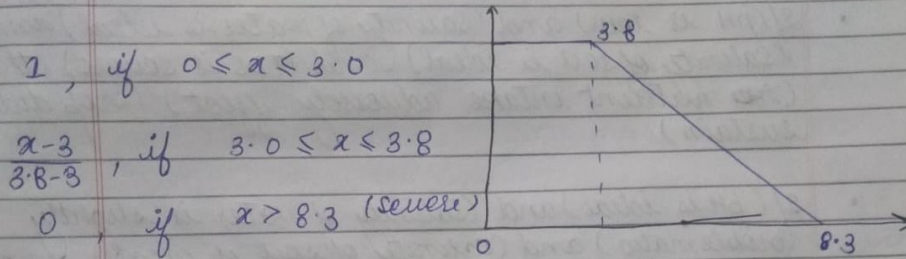 3.8
1, if 0 ≤ x ≤ 3.0
x-3/3.8-3, if 3.0 ≤ x ≤ 3.8
0, if x > 8.3 (severe)
0 8.3